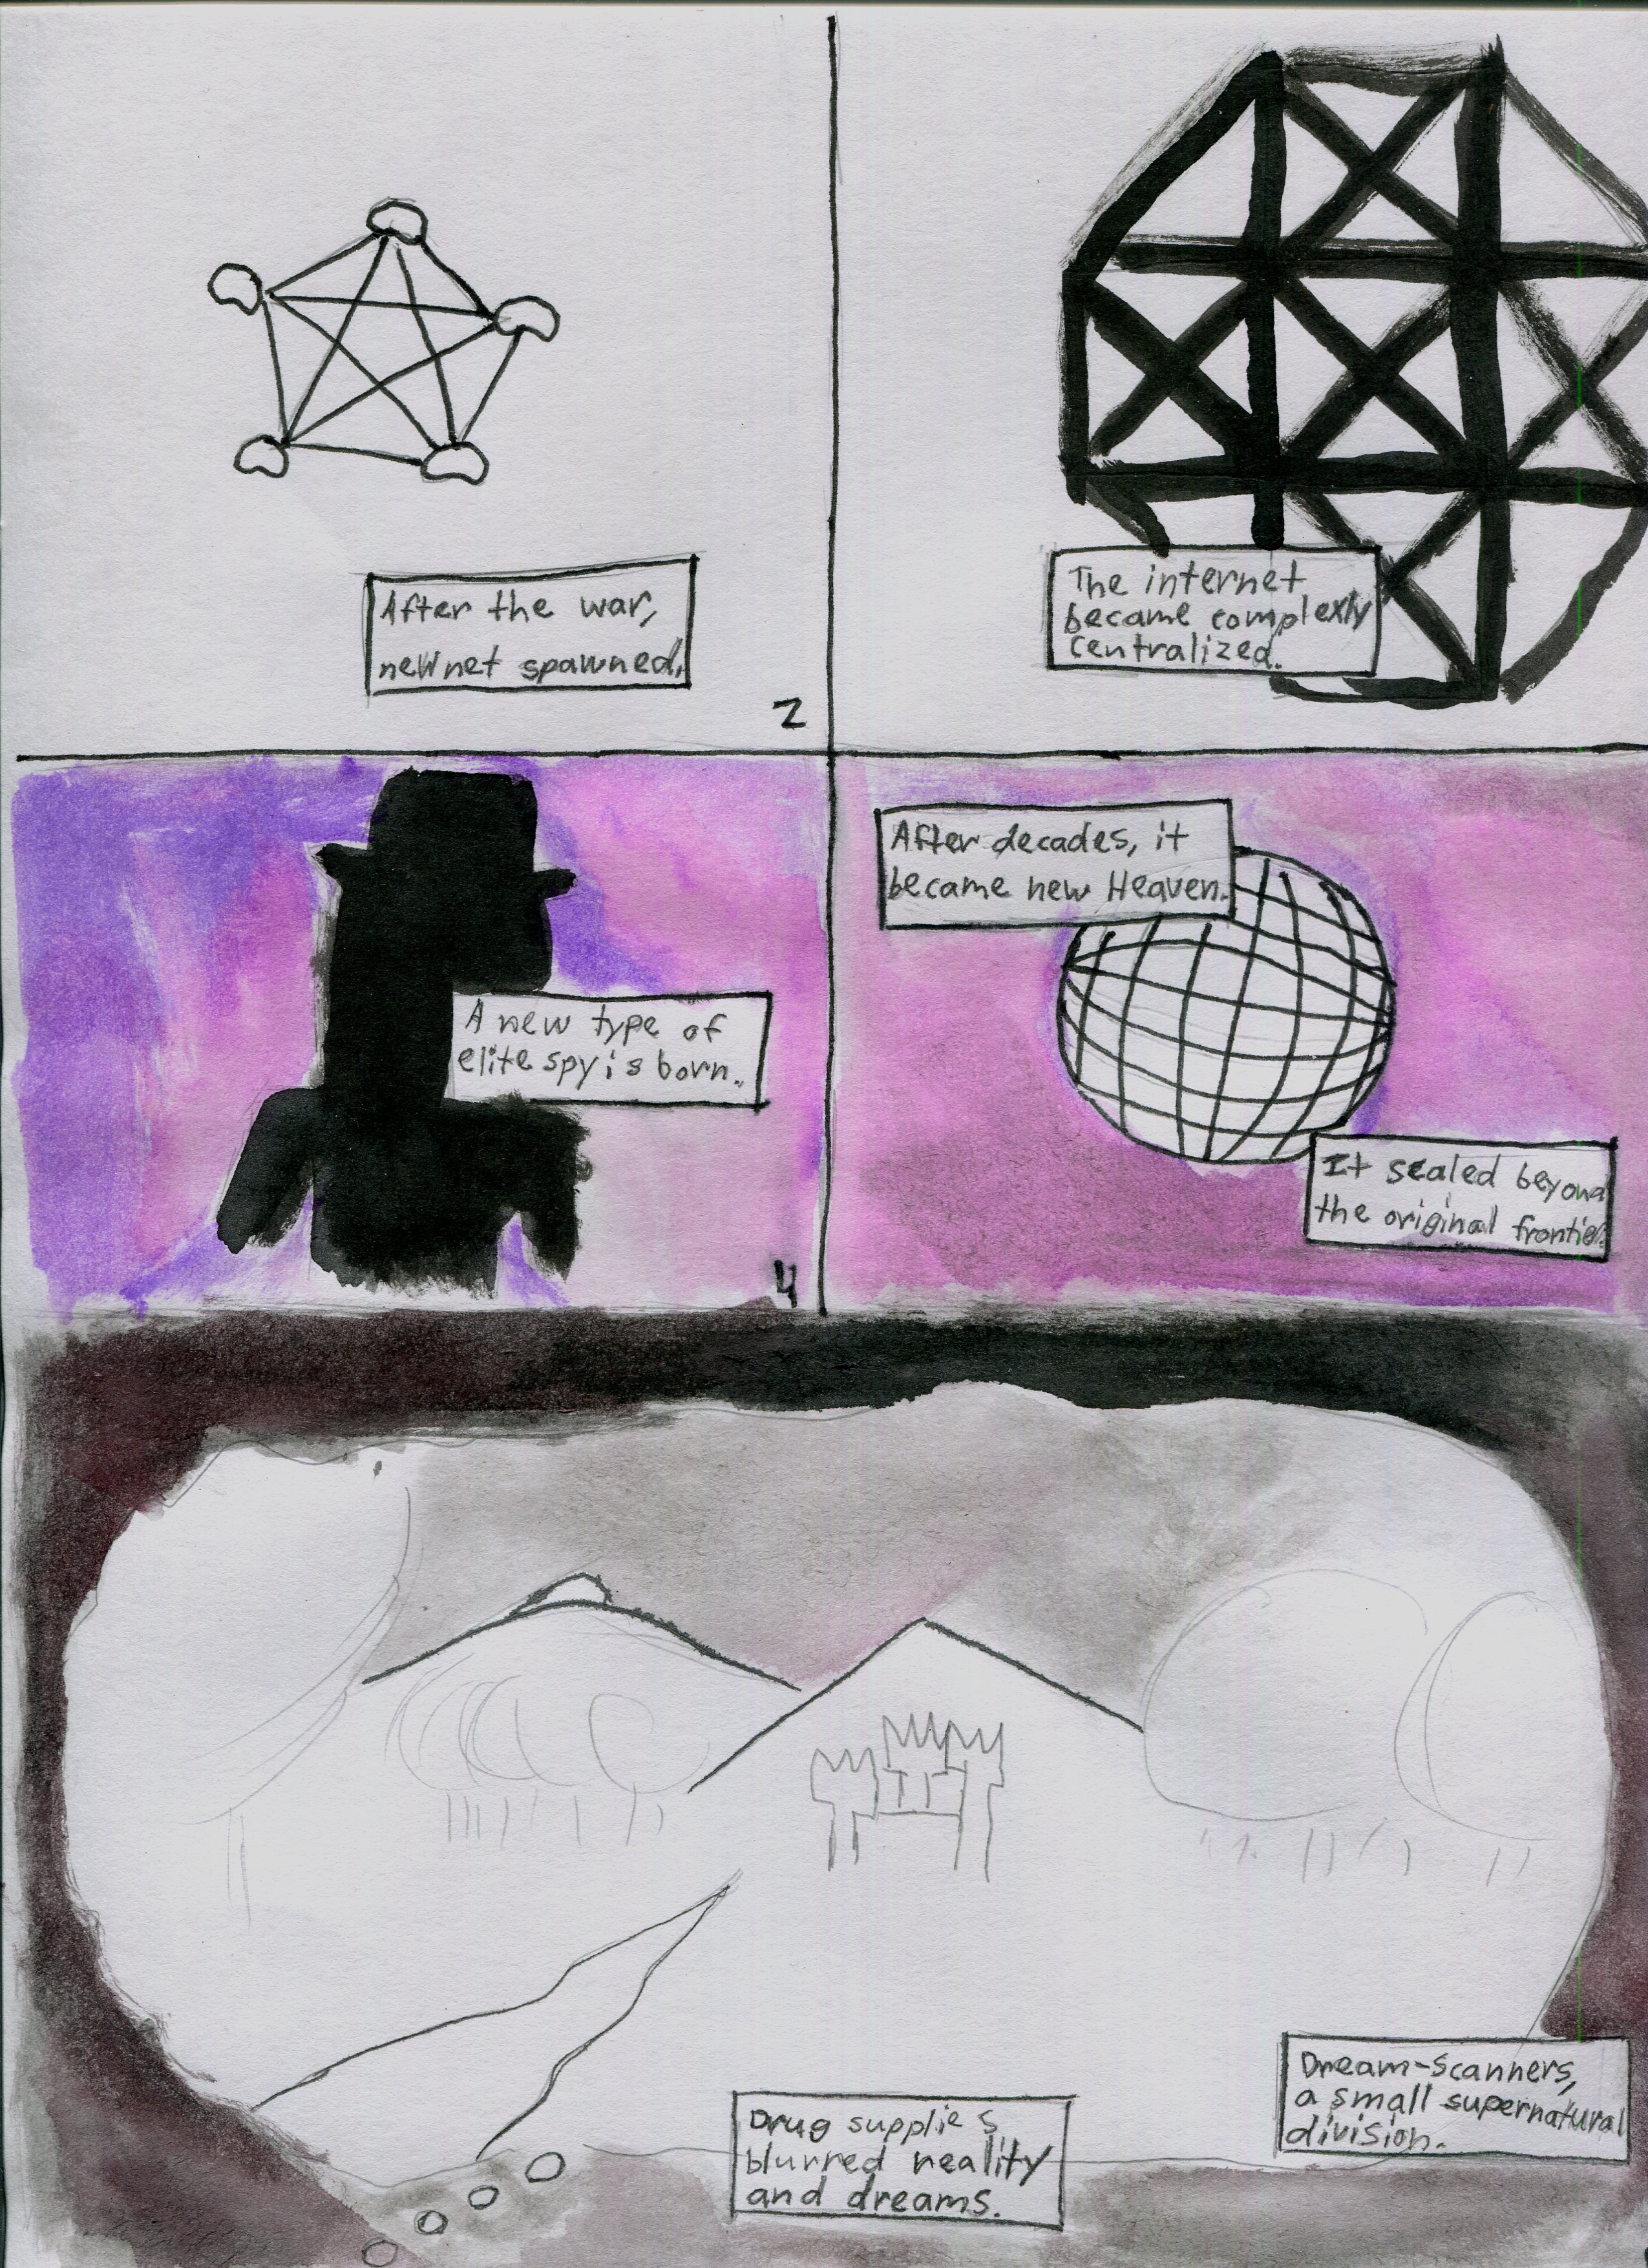 After the war,
newnet spawned.
2
The internet
became complexly
centralized.
A new type of
elite spy is born.
4
After decades, it
became new Heaven.
It scaled beyond
the original frontier.
Drug supplies
blurred reality
and dreams.
Dream-scanners,
a small supernatural
division.